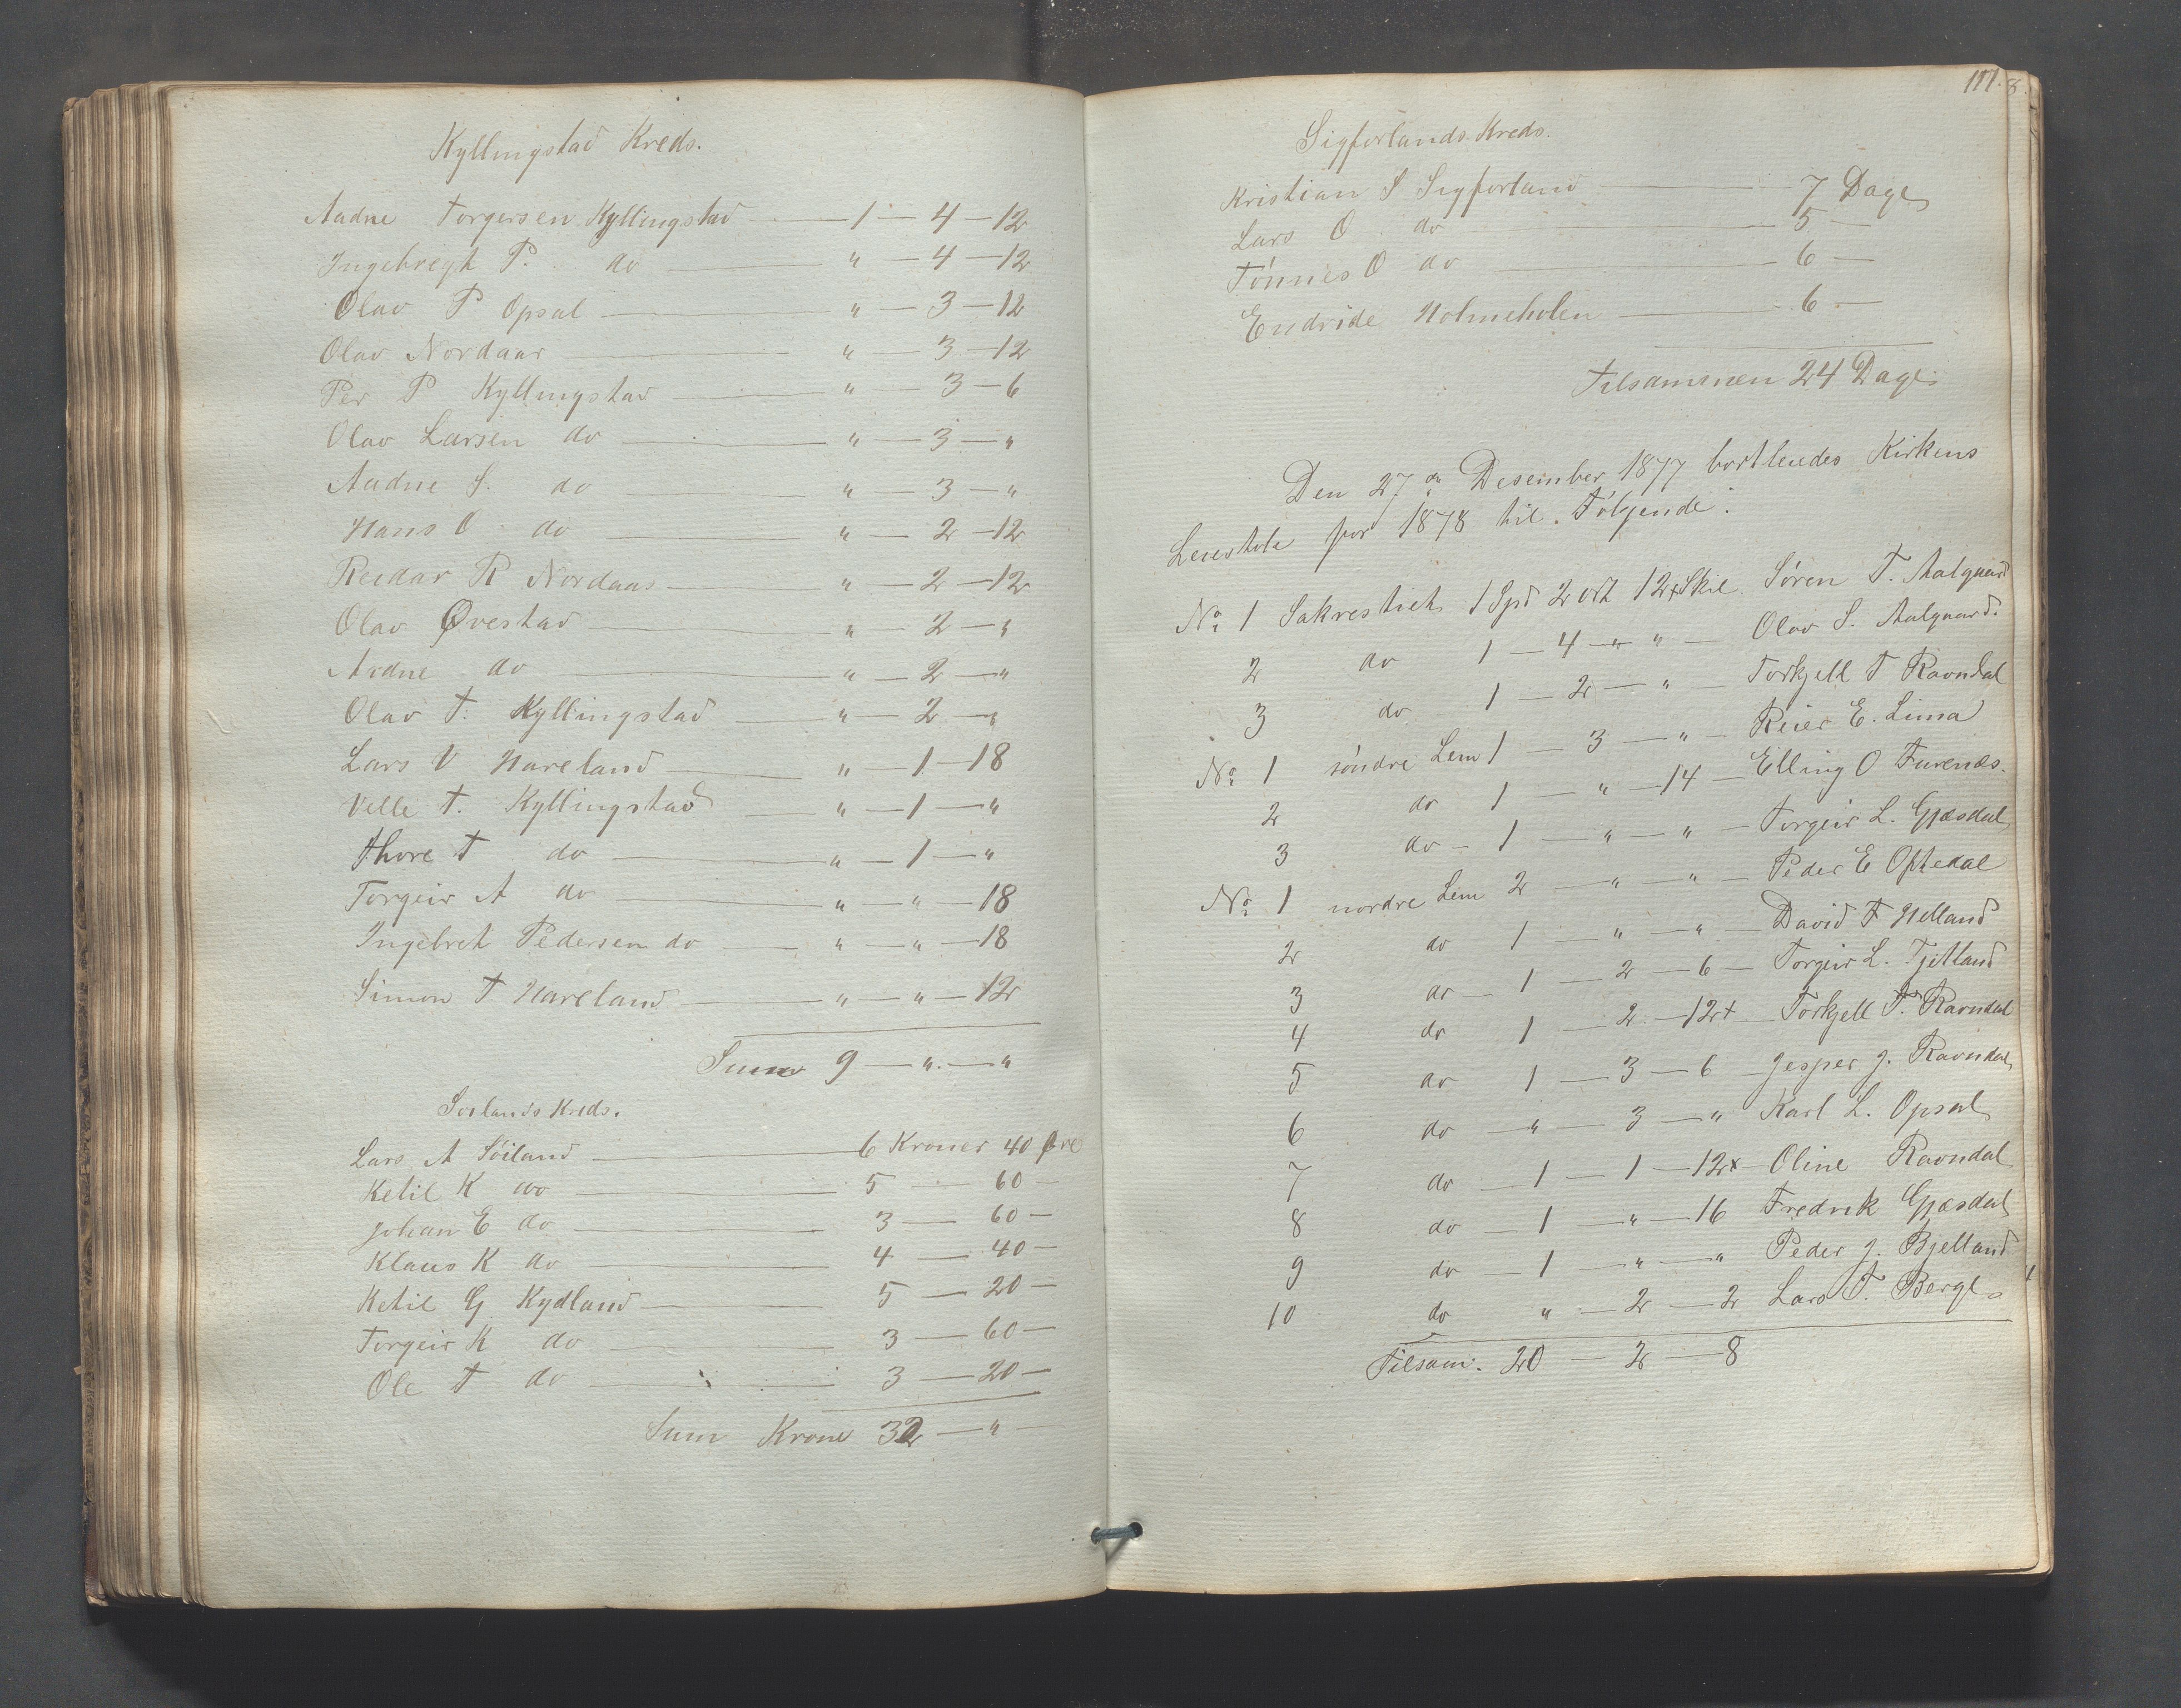 Kyllingstad Kreds.
Aadne Torgersen Kyllingstad — 1 — 4 — 12
Ingebregt P. do — " — 4 — 12
Olav P Opsal — " — 3 — 12
Olav Nordaas — " — 3 — 12
Per P Kyllingstad — " — 3 — 6
Olav Larsen do — " — 3 — "
Aadne S. do — " — 3 — "
Hans O do — " — 2 — 12
Reidar R Nordaas — " — 2 — 12
Olav Øvestad — " — 2 — "
Aadne do — " — 2 — "
Olav T. Kyllingstad — " — 2 — "
Lars V Hareland — " — 1 — 18
Velle T. Kyllingstad — " — 1 — "
Thore T do — " — 1 — "
Torgeir A do — " — " — 18
Ingebret Pedersen do — " — " — 18
Simon T Hareland — " — " — 12
Sum 9 — " — "
Soilands Kreds.
Lars A Söiland — 6 Kroner 40 Øre
Ketil K do — 5 — 60 —
Johan E do — 3 — 60 —
Klaus K do — 4 — 40 —
Ketil G Kydland — 5 — 20 —
Torgeir K do — 3 — 60 —
Ole T do — 3 — 20 —
Sum Krone 32 — " —
Sigforlands Kreds.
Kristian S Sigforland — 7 Dage
Lars O do — 5 —
Tönnes O do — 6 —
Endride Holmeholen — 6 —
Tilsammen 24 Dage
Den 27de Desember 1877 bortleiedes Kirkens
Leiestole for 1878 til Følgende:
No 1 Sakrestiet 1 Spd 2 ort 12 Skil. Sören T. Aalgaard
2 do 1 — 4 — " — Olav S. Aalgaard.
3 do 1 — 2 — " — Torkjell T Ravndal
No 1 söndre Lem 1 — 3 — " — Reier E. Lima
2 do 1 — " — 14 — Elling O Furenæs.
3 do — 1 — " — " — Torgeir L. Gjæsdal
No 1 nordre Lem 2 — " — " — Peder E Oftedal
2 do 1 — " — " — David T Helland
3 do — 1 — 2 — 6 — Torgeir L. Tjetland
4 do 1 — 2 — 12+ — Torkjell T. Ravndal
5 do 1 — 3 — 6 — Jesper J. Ravndal
6 do — " — 3 — " Karl L. Opsal
7 do — 1 — 1 — 12+ — Oline Ravndal
8 do — 1 — " — 16 Fredrik Gjæsdal
9 do — 1 — " — " Peder J. Bjelland
10 do " — 2 — 2 Lars T. Berge
Tilsam. 20 — 2 — 8